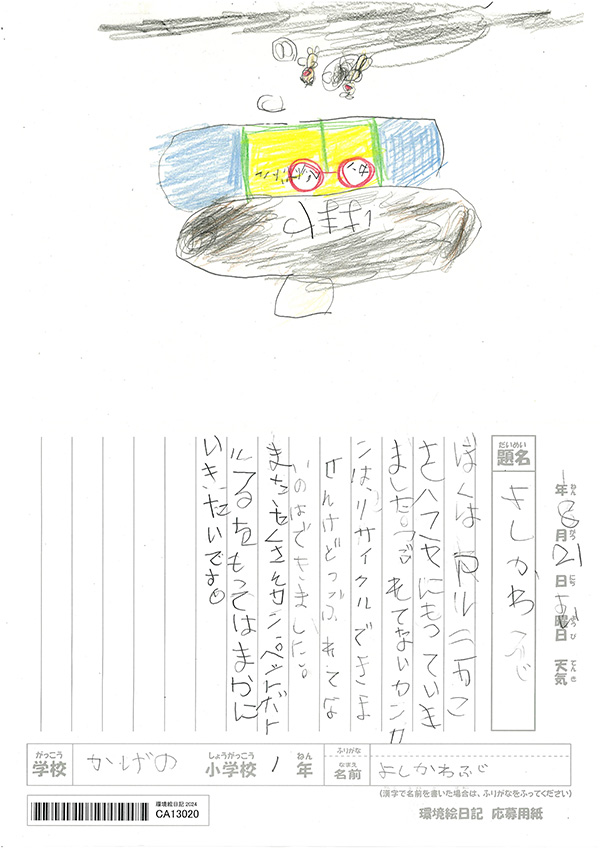 カン
ペットボトル
はまし
だいめい
題名
よしかわ ふじ
ねん がつ にち ようび てんき
1年8月21日 曜日 天気
ぼくは
をハマヤにもっていき
ました。つぶれてないカンカ
ンは、リサイクルできま
せんけどつぶれてな
いのはできました。
またたくさんカン、ペットボト
ルをもってはまかに
いきたいです。
がっこう しょうがっこう ねん
学校 かげの 小学校 1年
ふりがな
なまえ
名前 よしかわふじ
(漢字で名前を書いた場合は、ふりがなをふってください)
環境絵日記 応募用紙
環境絵日記2024
CA13020